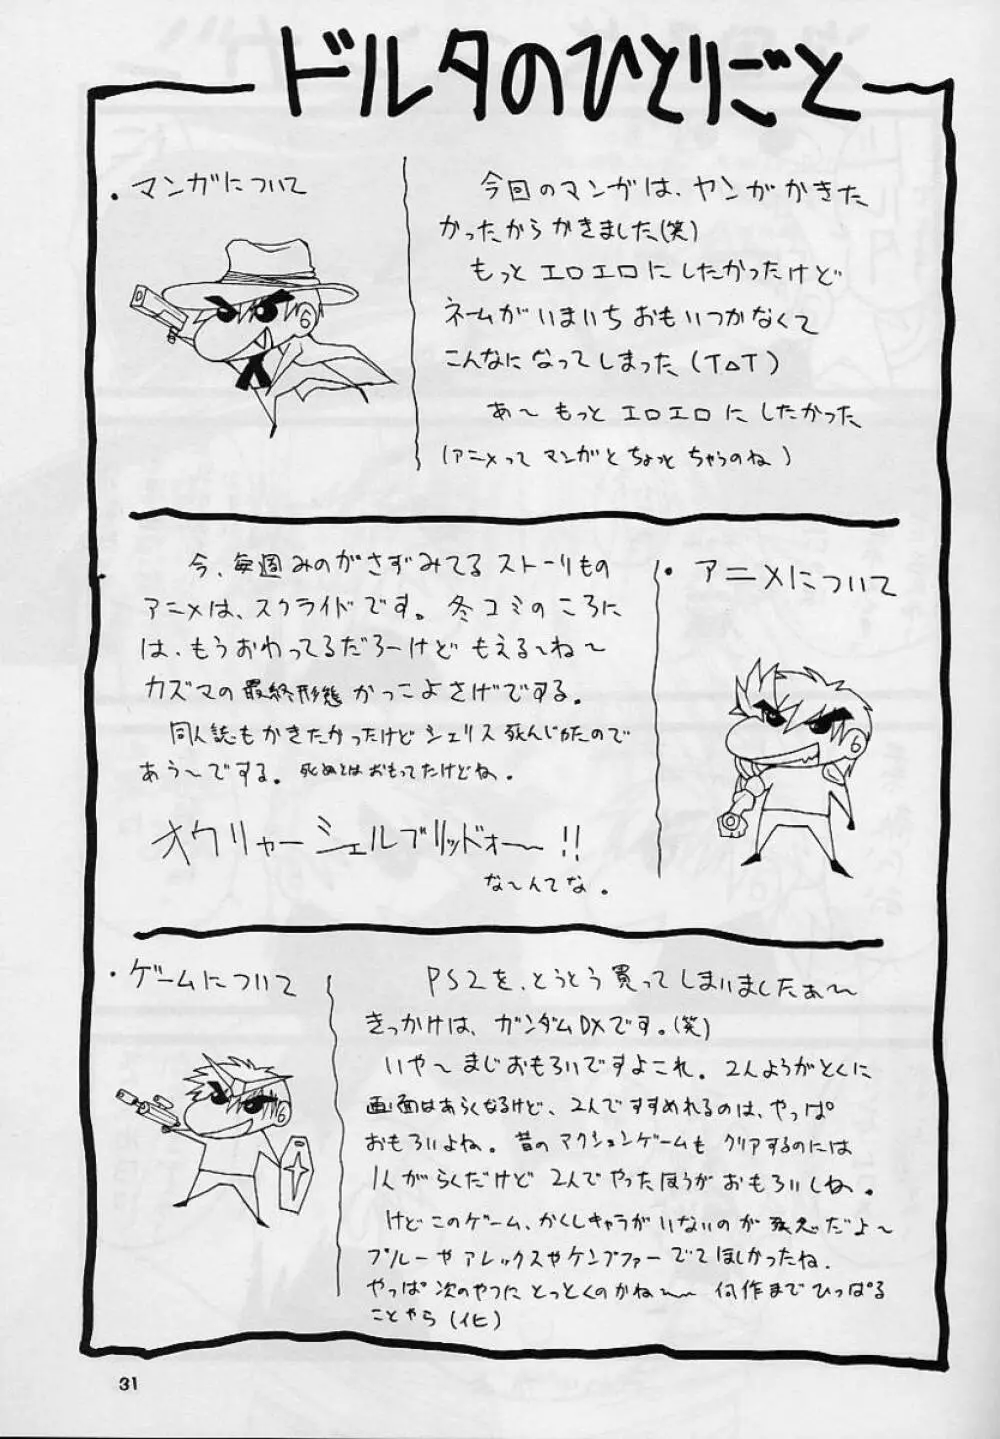 ドルタのひとりごと
・マンガについて
今回のマンガは、ヤンがかきた
かったからかきました(笑)
もっとエロエロにしたかったけど
ネームがいまいちおもいつかなくて
こんなになってしまった(T△T)
あ〜もっとエロエロにしたかった
(アニメってマンガとちょっとちゃうのね)
・アニメについて
今、毎週みのがさずみてるストーリもの
アニメは、スクライドです。冬コミのころに
は、もうおわってるだろーけどもえる〜ね〜
カズマの最終形態かっこよさげでする。
同人誌もかきたかったけどシェリス死んじがたので
あう〜でする。死ぬとはおもってたけどね。
オウリャーシェルブリッドォー〜!!
な〜んてな。
・ゲームについて
PS2を、とうとう買ってしまいましたぁ〜
きっかけは、ガンダムDXです。(笑)
いや〜まじおもろいですよこれ。2人ようがとくに
画面はあらくなるけど、2人ですすめれるのは、やっぱ
おもろいよね。昔のアクションゲームもクリアするのには
1人がらくだけど2人でやったほうがおもろいしね。
けどこのゲーム、かくしキャラがいないのが残念だよ〜
プルーやアレックスやケンプファーでてほしかったね.
やっぱ次のやつにとっとくのかね〜 何作までひっぱる
ことやら(イヒ)
31